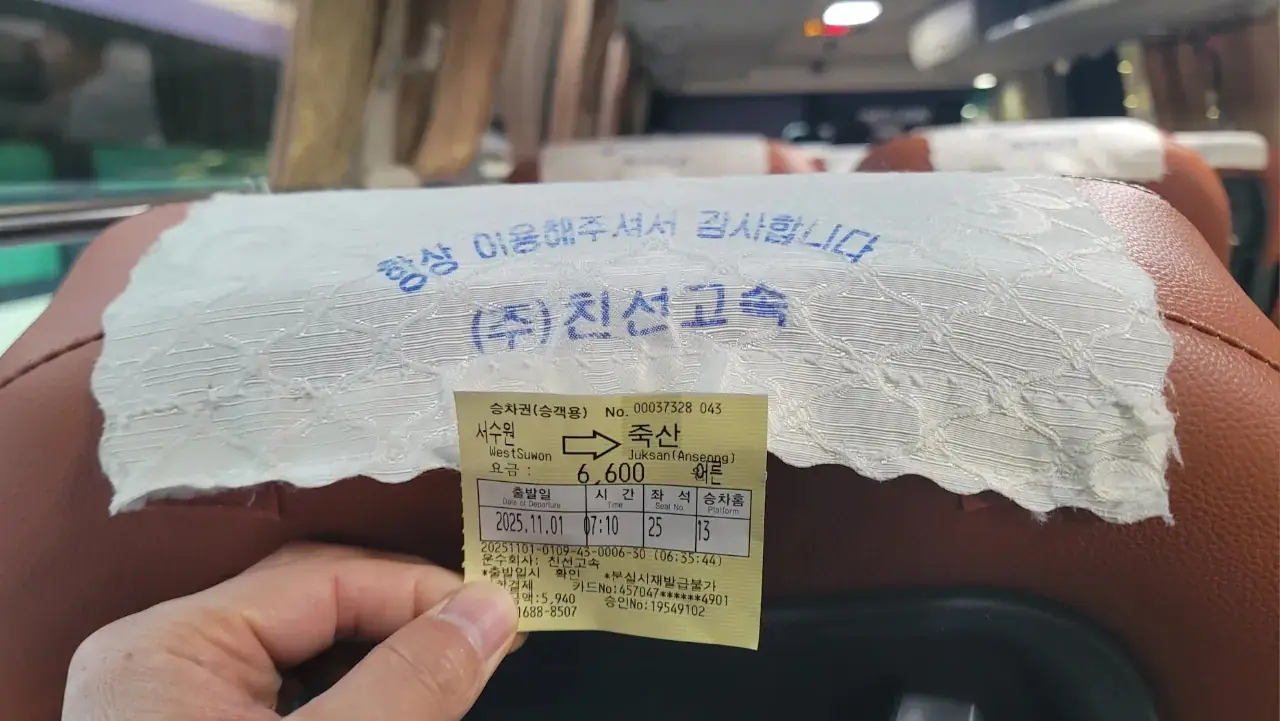 항상 이용해주셔서 감사합니다
(주)친선고속
승차권(승객용) No. 00037328 043
서수원 죽산
WestSuwon Juksan(Anseong)
요금 : 6,600 어른
출발일 시 간 좌 석 승차홈
Date of Departure Time Seat No. Platform
2025.11.01 07:10 25 13
20251101-0109-43-0006-30 (06:35:44)
운수회사: 친선고속
*출발일시 확인 *분실시재발급불가
카드No:457047******4901
액:5,940 승인No:19549102
1688-8507